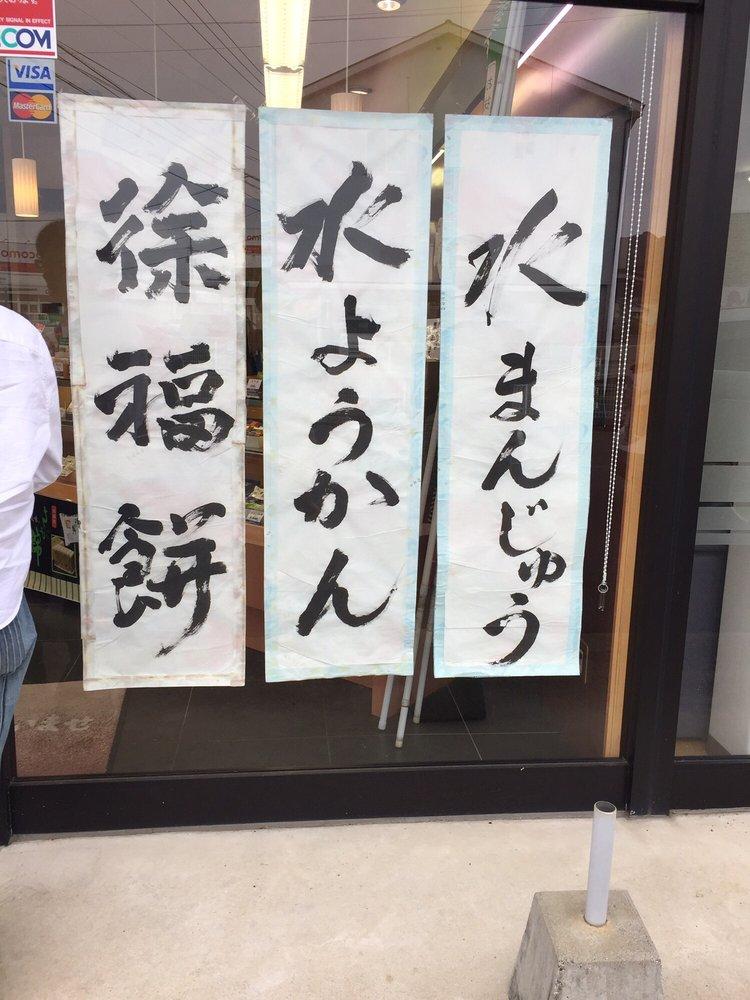 水まんじゅう
水ようかん
徐福餅
Y SIGNAL IN EFFECT
COM
VISA
MasterCard
いませ